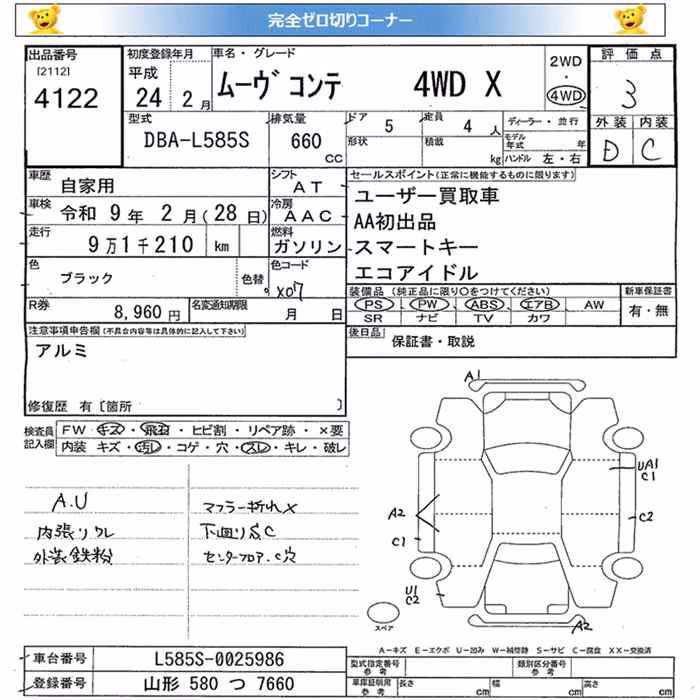 完全ゼロ切りコーナー
出品番号
[2112]
4122
初度登録年月
平成
24 2月
車名・グレード
ムーヴ コンテ 4WD X
2WD
・
4WD
評価点
3
外装 内装
D C
型式
DBA-L585S
排気量
660
CC
ドア
5
形状
定員
4 人
積載
kg
ディーラー・並行
モデル年式 年
ハンドル 左・右
車歴
自家用
シフト
AT
車検
令和 9年 2月(28日)
冷房
AAC
走行
9万1千210 km
燃料
ガソリン
色
ブラック
色替
色コード
X07
R券
8,960円
名変通知期限
月 日
セールスポイント(正常に機能するものに限ります)
ユーザー買取車
AA初出品
スマートキー
エコアイドル
装備品(純正品に限り○をつけてください)
PS PW ABS エアB AW
SR ナビ TV カワ
新車保証書
有・無
後日品
保証書・取説
注意事項申告欄(不具合内容等は具体的に記入して下さい)
アルミ
修復歴 有〔箇所 〕
検査員
記入欄
FW キズ・飛石・ヒビ割・リペア跡・×要
内装 キズ・汚レ・コゲ・穴・スレ・キレ・破レ
A.U
内張りクレ
外装鉄粉
マフラー折れX
下回りS.C
センターフロア.C穴
A1
UA1
C1
A2
C2
C1
U1
C2
A2
スペア
A-キズ E-エクボ U-凹み W-補修跡 S-サビ C-腐食 XX-交換済
車台番号
L585S-0025986
登録番号
山形 580 つ 7660
型式指定番号
参考
類別区分番号
参考
車庫証明用
参考
長さ cm
幅 cm
高さ cm